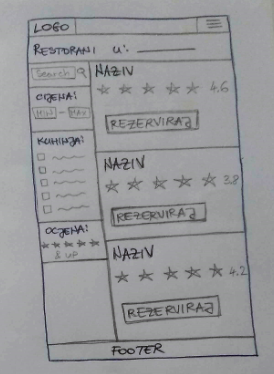 LOGO
RESTORANI U:
Search
CIJENA:
MIN - MAX
KUHINJA:
OCJENA:
& UP
NAZIV
4.6
REZERVIRAJ
NAZIV
3.8
REZERVIRAJ
NAZIV
4.2
REZERVIRAJ
FOOTER